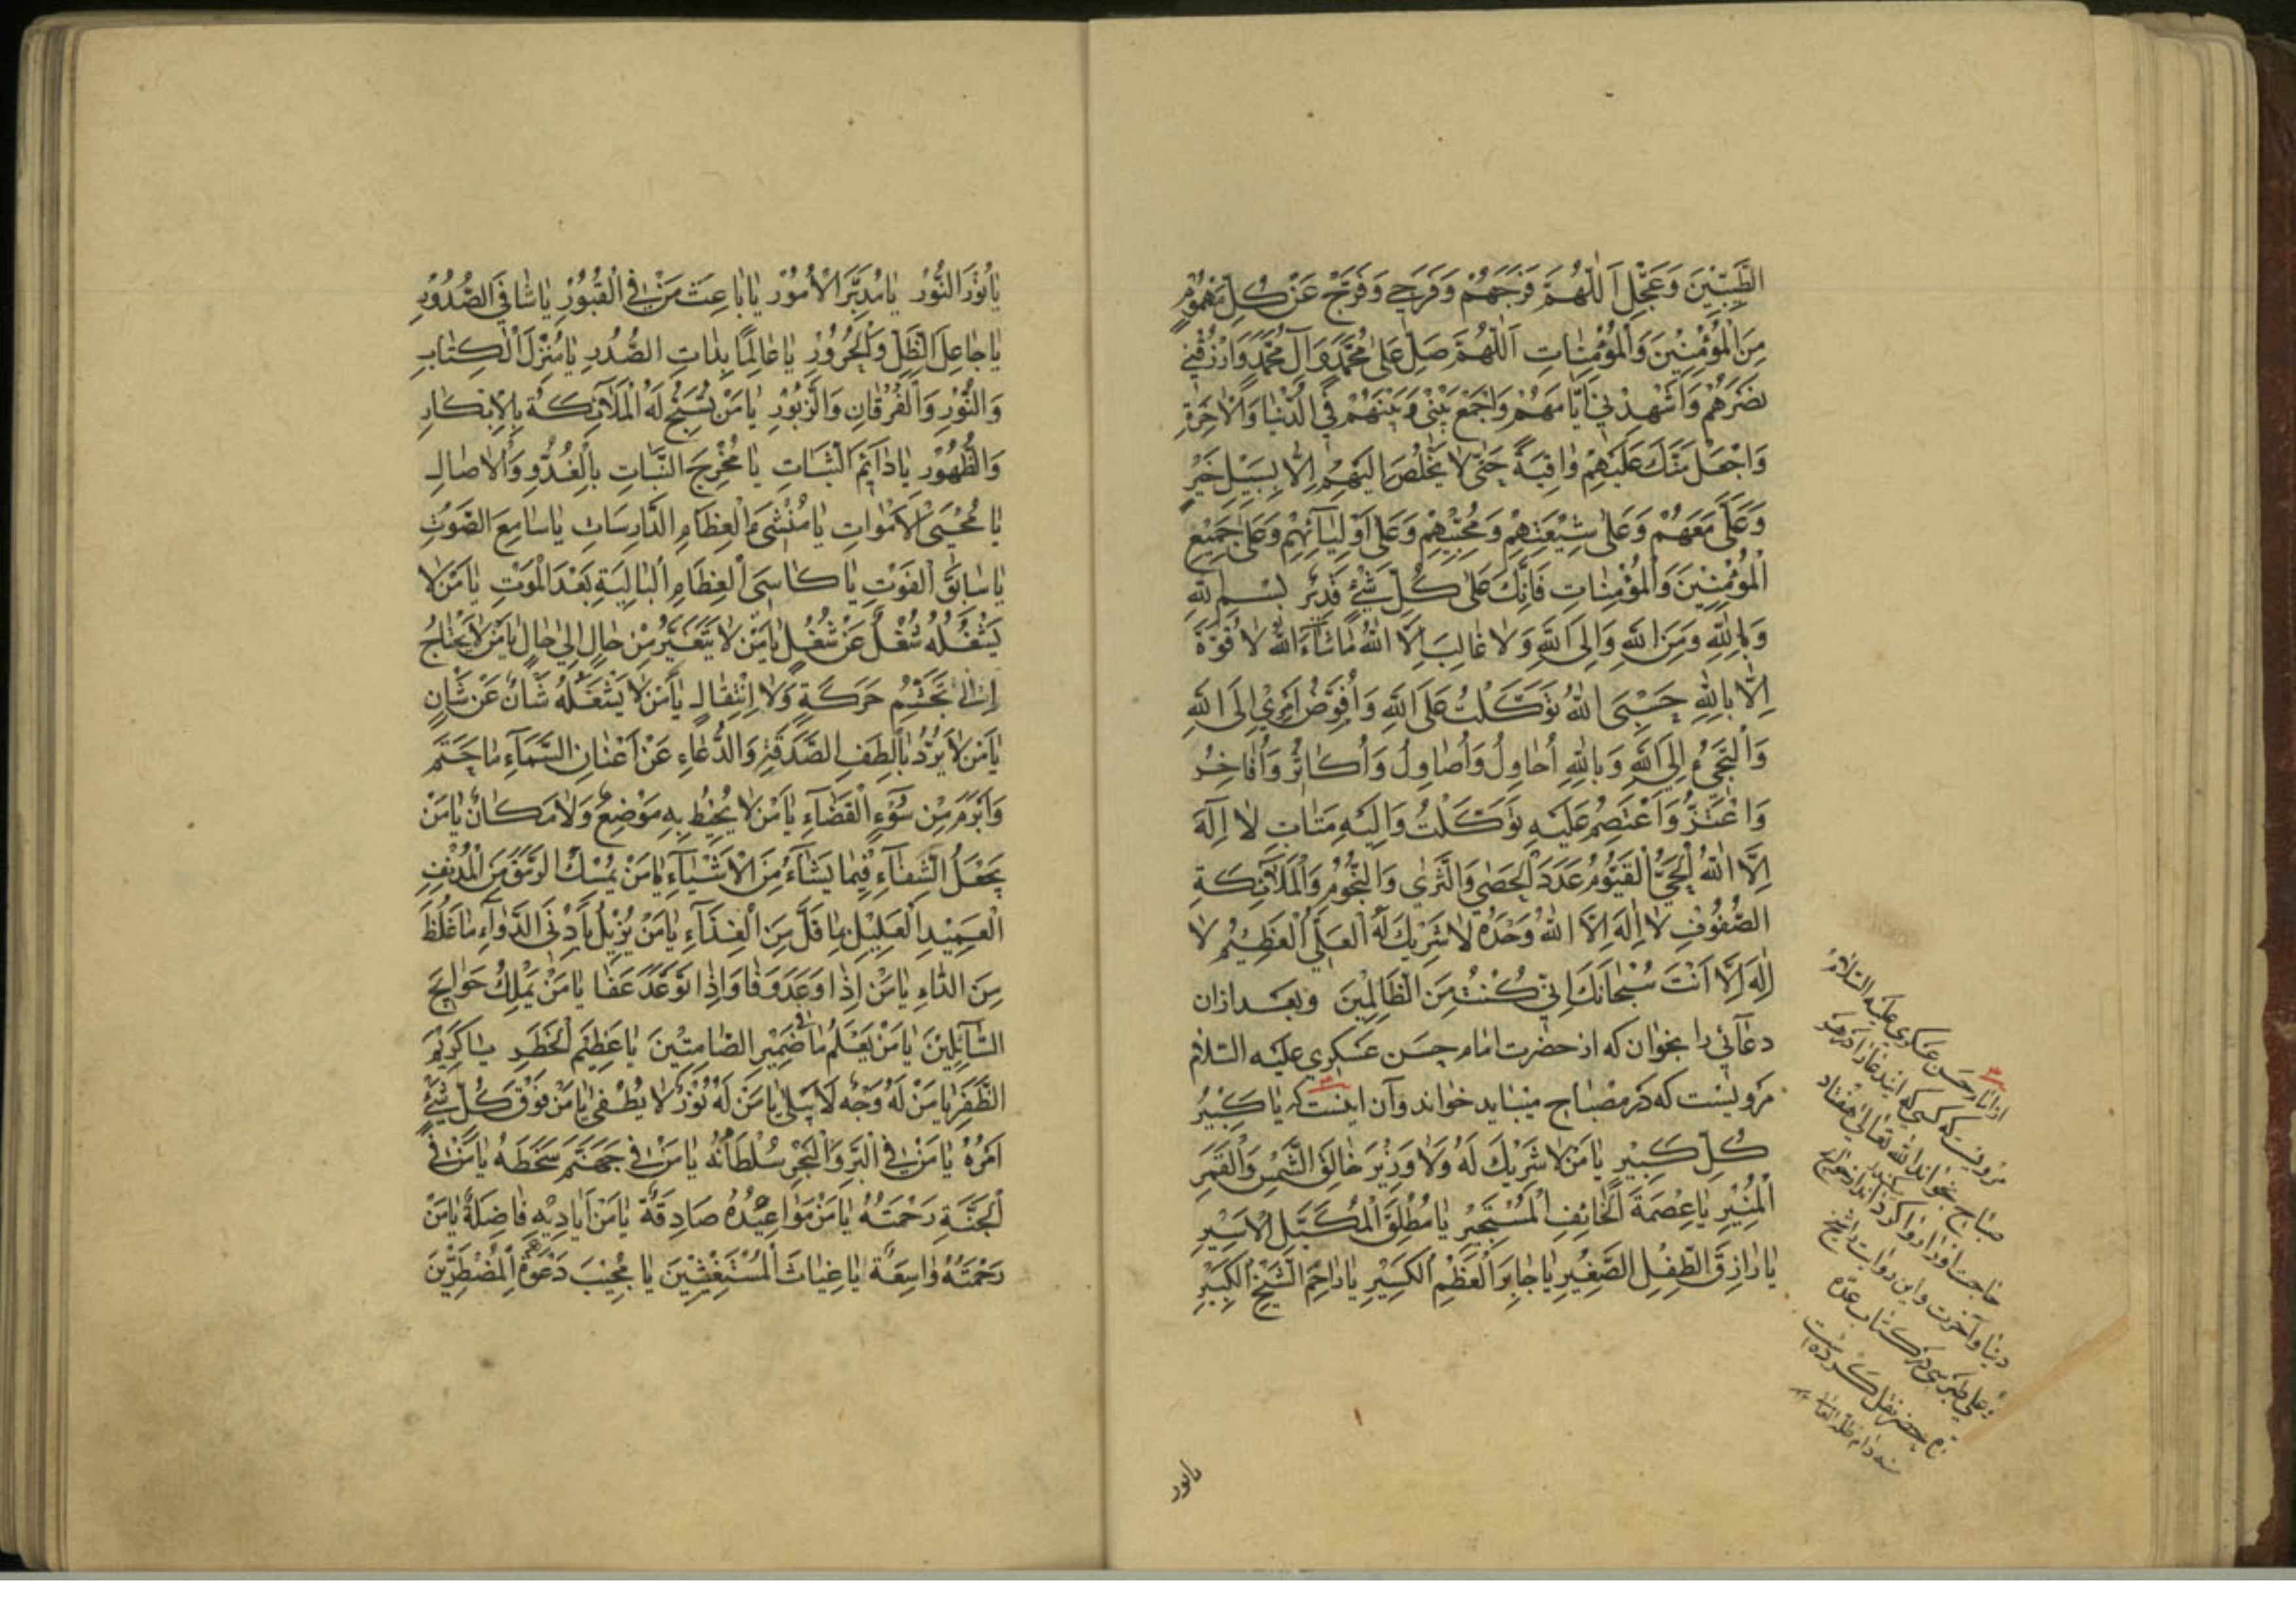 الطَّيِّبِيْنَ وَعَجِّلِ اَللّٰهُمَّ فَرَجَهُمْ وَفَرَجِي وَفَرِّجْ عَنْ كُلِّ مَهْمُومٍ
مِنَ الْمُؤْمِنِيْنَ وَالْمُؤْمِنٰاتِ اَللّٰهُمَّ صَلِّ عَلىٰ مُحَمَّدٍ وَآلِ مُحَمَّدٍ وَارْزُقْنِي
نَصْرَهُمْ وَاَشْهِدْنِي اَيَّامَهُمْ وَاجْمَعْ بَيْنِي وَبَيْنَهُمْ فِي الدُّنْيٰا وَالْاٰخِرَةِ
وَاجْعَلْ مِنْكَ عَلَيْهِمْ وٰاقِيَةً حَتّىٰ لٰا يَخْلُصَ اِلَيْهِمْ اِلّٰا بِسَبِيْلِ خَيْرٍ
وَعَلَىَّ مَعَهُمْ وَعَلىٰ شِيْعَتِهِمْ وَمُحِبِّيْهِمْ وَعَلىٰ اَوْلِيٰآئِهِمْ وَعَلىٰ جَمِيْعِ
الْمُؤْمِنِيْنَ وَالْمُؤْمِنٰاتِ فَاِنَّكَ عَلىٰ كُلِّ شَيْءٍ قَدِيْرٌ بِسْمِ اللّٰهِ
وَبِاللّٰهِ وَمِنَ اللّٰهِ وَاِلَى اللّٰهِ وَلٰا غٰالِبَ اِلَّا اللّٰهُ مٰا شٰآءَ اللّٰهُ لٰا قُوَّةَ
اِلّٰا بِاللّٰهِ حَسْبِيَ اللّٰهُ تَوَكَّلْتُ عَلَى اللّٰهِ وَاُفَوِّضُ اَمْرِيْ اِلَى اللّٰهِ
وَاَلْتَجِئُ اِلَى اللّٰهِ وَبِاللّٰهِ اُحٰاوِلُ وَاُصٰاوِلُ وَاُكٰاثِرُ وَاُفٰاخِرُ
وَاَعْتَزُّ وَاَعْتَصِمُ عَلَيْهِ تَوَكَّلْتُ وَاِلَيْهِ مَتٰابِ لٰا اِلٰهَ
اِلَّا اللّٰهُ الْحَيُّ الْقَيُّوْمُ عَدَدَ الْحَصىٰ وَالثَّرىٰ وَالنُّجُوْمِ وَالْمَلٰآئِكَةِ
الصُّفُوْفِ لٰا اِلٰهَ اِلَّا اللّٰهُ وَحْدَهُ لٰا شَرِيْكَ لَهُ الْعَلِيُّ الْعَظِيْمُ لٰا
اِلٰهَ اِلَّا اَنْتَ سُبْحٰانَكَ اِنِّي كُنْتُ مِنَ الظّٰالِمِيْنَ وبعد ازان
دعآئي را بخوان كه از حضرت امام حسن عسكري عليه السّلام
مرويست كه در مصباح ميبايد خواند وآن اينست كه يٰا كَبِيْرُ
كُلِّ كَبِيْرٍ يٰا مَنْ لٰا شَرِيْكَ لَهُ وَلٰا وَزِيْرَ خٰالِقَ الشَّمْسِ وَالْقَمَرِ
الْمُنِيْرِ يٰا عِصْمَةَ الْخٰائِفِ الْمُسْتَجِيْرِ يٰا مُطْلِقَ الْمُكَبَّلِ الْاَسِيْرِ
يٰا رٰازِقَ الطِّفْلِ الصَّغِيْرِ يٰا جٰابِرَ الْعَظْمِ الْكَسِيْرِ يٰا رٰاحِمَ الشَّيْخِ الْكَبِيْرِ
از امام حسن عسكري عليه السّلام
مرويست كه كسي كه اين دعا را در هر
صباح بخواند الله تعالى هفتاد
حاجت او را روا كرداند از حوايج
دنيا وآخرت واين روايت را شيخ
طبرسي در كتاب عدّه
نقل كرده
دام ظلّه
يانور
يٰا نُوْرَ النُّوْرِ يٰا مُدَبِّرَ الْاُمُوْرِ يٰا بٰاعِثَ مَنْ فِي الْقُبُوْرِ يٰا شٰافِيَ الصُّدُوْرِ
يٰا جٰاعِلَ الظِّلِّ وَالْحَرُوْرِ يٰا عٰالِمًا بِذٰاتِ الصُّدُرِ يٰا مُنْزِلَ الْكِتٰابِ
وَالنُّوْرِ وَالْفُرْقٰانِ وَالزَّبُوْرِ يٰا مَنْ تُسَبِّحُ لَهُ الْمَلٰآئِكَةُ بِالْاِبْكٰارِ
وَالظُّهُوْرِ يٰا دٰآئِمَ الثَّبٰاتِ يٰا مُخْرِجَ النَّبٰاتِ بِالْغُدُوِّ وَالْاٰصٰالِ
يٰا مُحْيِيَ الْاَمْوٰاتِ يٰا مُنْشِئَ الْعِظٰامِ الدّٰارِسٰاتِ يٰا سٰامِعَ الصَّوْتِ
يٰا سٰابِقَ الْفَوْتِ يٰا كٰاسِيَ الْعِظٰامِ الْبٰالِيَةِ بَعْدَ الْمَوْتِ يٰا مَنْ لٰا
يَشْغَلُهُ شُغْلٌ عَنْ شُغْلٍ يٰا مَنْ لٰا يَتَغَيَّرُ مِنْ حٰالٍ اِلىٰ حٰالٍ يٰا مَنْ لٰا يَحْتٰاجُ
اِلىٰ تَجَشُّمِ حَرَكَةٍ وَلٰا اِنْتِقٰالٍ يٰا مَنْ لٰا يَشْغَلُهُ شَأنٌ عَنْ شَأنٍ
يٰا مَنْ لٰا يَرُدُّ بِاَلْطَفِ الصَّدَقَةِ وَالدُّعٰاءِ عَنْ اَعْنٰانِ السَّمٰآءِ مٰا حَتَمَ
وَاَبْرَمَ مِنْ سُوْءِ الْقَضٰآءِ يٰا مَنْ لٰا يُحِيْطُ بِهِ مَوْضِعٌ وَلٰا مَكٰانٌ يٰا مَنْ
يَجْعَلُ الشِّفٰآءَ فِيْمٰا يَشٰآءُ مِنَ الْاَشْيٰآءِ يٰا مَنْ يُمْسِكُ الرَّمَقَ مِنَ الْمُدْنِفِ
الْعَمِيْدِ الْعَلِيْلِ بِمٰا قَلَّ مِنَ الْغِذٰآءِ يٰا مَنْ يُزِيْلُ بِاَدْنَى الدَّوٰآءِ مٰا غَلُظَ
مِنَ الدّٰاءِ يٰا مَنْ اِذٰا وَعَدَ وَفٰا وَاِذٰا تَوَعَّدَ عَفٰا يٰا مَنْ يَمْلِكُ حَوٰائِجَ
السّٰآئِلِيْنَ يٰا مَنْ يَعْلَمُ مٰا في ضَمِيْرِ الصّٰامِتِيْنَ يٰا عَظِيْمَ الْخَطَرِ يٰا كَرِيْمَ
الظَّفَرِ يٰا مَنْ لَهُ وَجْهٌ لٰا يَبْلىٰ يٰا مَنْ لَهُ نُوْرٌ لٰا يُطْفىٰ يٰا مَنْ فَوْقَ كُلِّ شَيْءٍ
اَمْرُهُ يٰا مَنْ فِي الْبَرِّ وَالْبَحْرِ سُلْطٰانُهُ يٰا مَنْ فِي جَهَنَّمَ سَخَطُهُ يٰا مَنْ فِي
الْجَنَّةِ رَحْمَتُهُ يٰا مَنْ مَوٰاعِيْدُهُ صٰادِقَةٌ يٰا مَنْ اَيٰادِيْهِ فٰاضِلَةٌ يٰا مَنْ
رَحْمَتُهُ وٰاسِعَةٌ يٰا غِيٰاثَ الْمُسْتَغِيْثِيْنَ يٰا مُجِيْبَ دَعْوَةِ الْمُضْطَرِّيْنَ